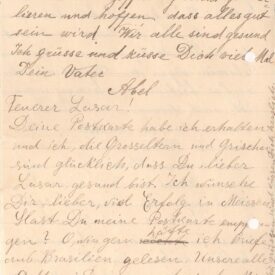 lieren und hoffen, dass alles gut
sein wird. Wir alle sind gesund
Ich grüsse und küsse Dich viel Mal
Dein Vater
Abel
Teuerer Lasar!
Deine Postkarte habe ich erhalten
und ich, die Grosseltern und Grischen
sind glücklich, dass Du lieber
Lasar, gesund bist. Ich wünsche
Dir, lieber, viel Erfolg in Meissen
Hast Du meine Postkarte empfan
gen? O, wie gern hätte ich Briefe
aus Brasilien gelesen. Unsere alte